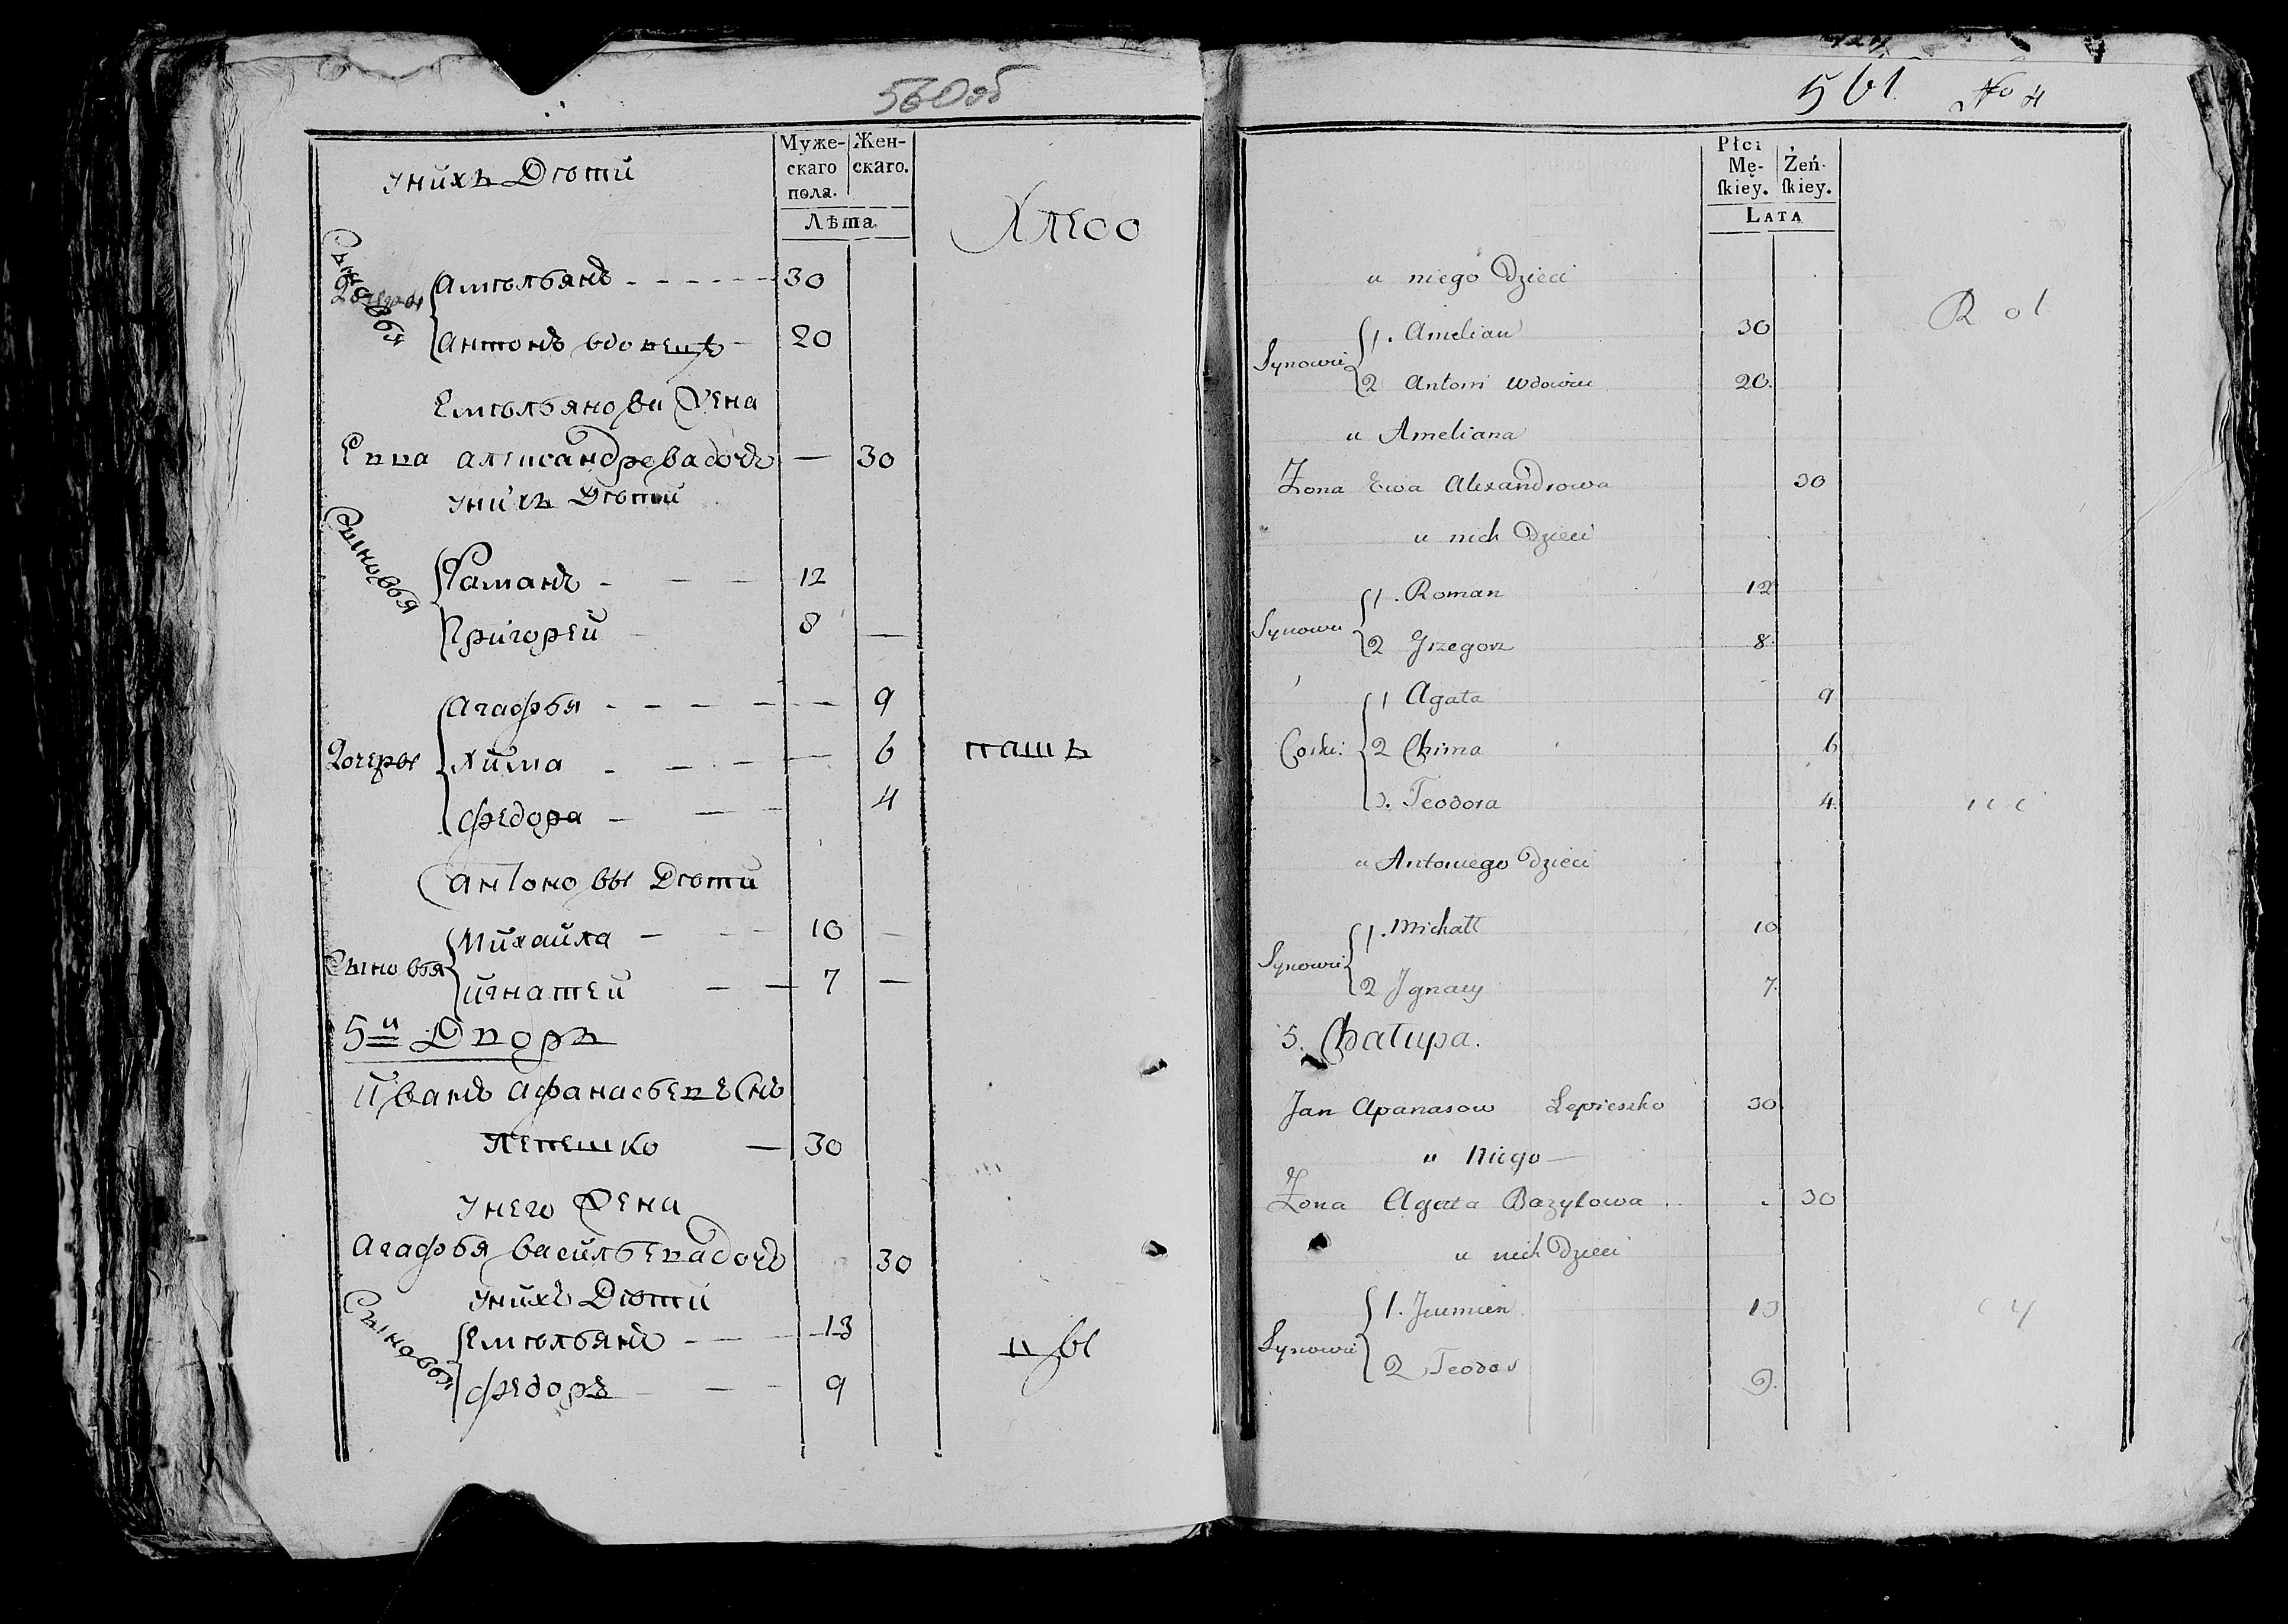 560об
Муже-
скаго
пола.
Жен-
скаго.
Лѣта.
у нихъ Дѣти
Хлебо
Сыновья
Амельянъ 30
Антонъ вдовецъ 20
Емельянова Жена
Евва Александрова дочь 30
у нихъ Дѣти
Сыновья
Раманъ 12
Григорей 8
Дочеры
Агафья 9
Хима 6
пашъ
Федора 4
Антоновы Дѣти
Сыновья
Михайла 10
Игнатей 7
5й Дворъ
Иванъ Афанасьевъ Снъ
Лепешко 30
у него Жена
Агафья Васильева дочь 30
у нихъ Дѣти
Сыновья
Емельянъ 13
цы
Федоръ 9
561
No 4
Płci
Mę-
ſkiey.
Żeń-
ſkiey.
Lata
u niego Dzieci
R o l
Synowie
1. Amelian 30
2 Antoni Wdowiec 20.
u Ameliana
Żona Ewa Alexandrowa 30
u nich Dzieci
Synowie
1. Roman 12
2 Grzegorz 8.
Corki:
1 Agata 9
2 Chima 6
3. Teodora 4.
n i c
u Antoniego Dzieci
Synowie
1. Michałł 10
2 Jgnacy 7.
5. Chałupa.
Jan Apanasow Lepieszko 30
u Niego
Żona Agata Bazylowa 30
u nich Dzieci
Synowie
1. 13
c y
2 Teodor 9.